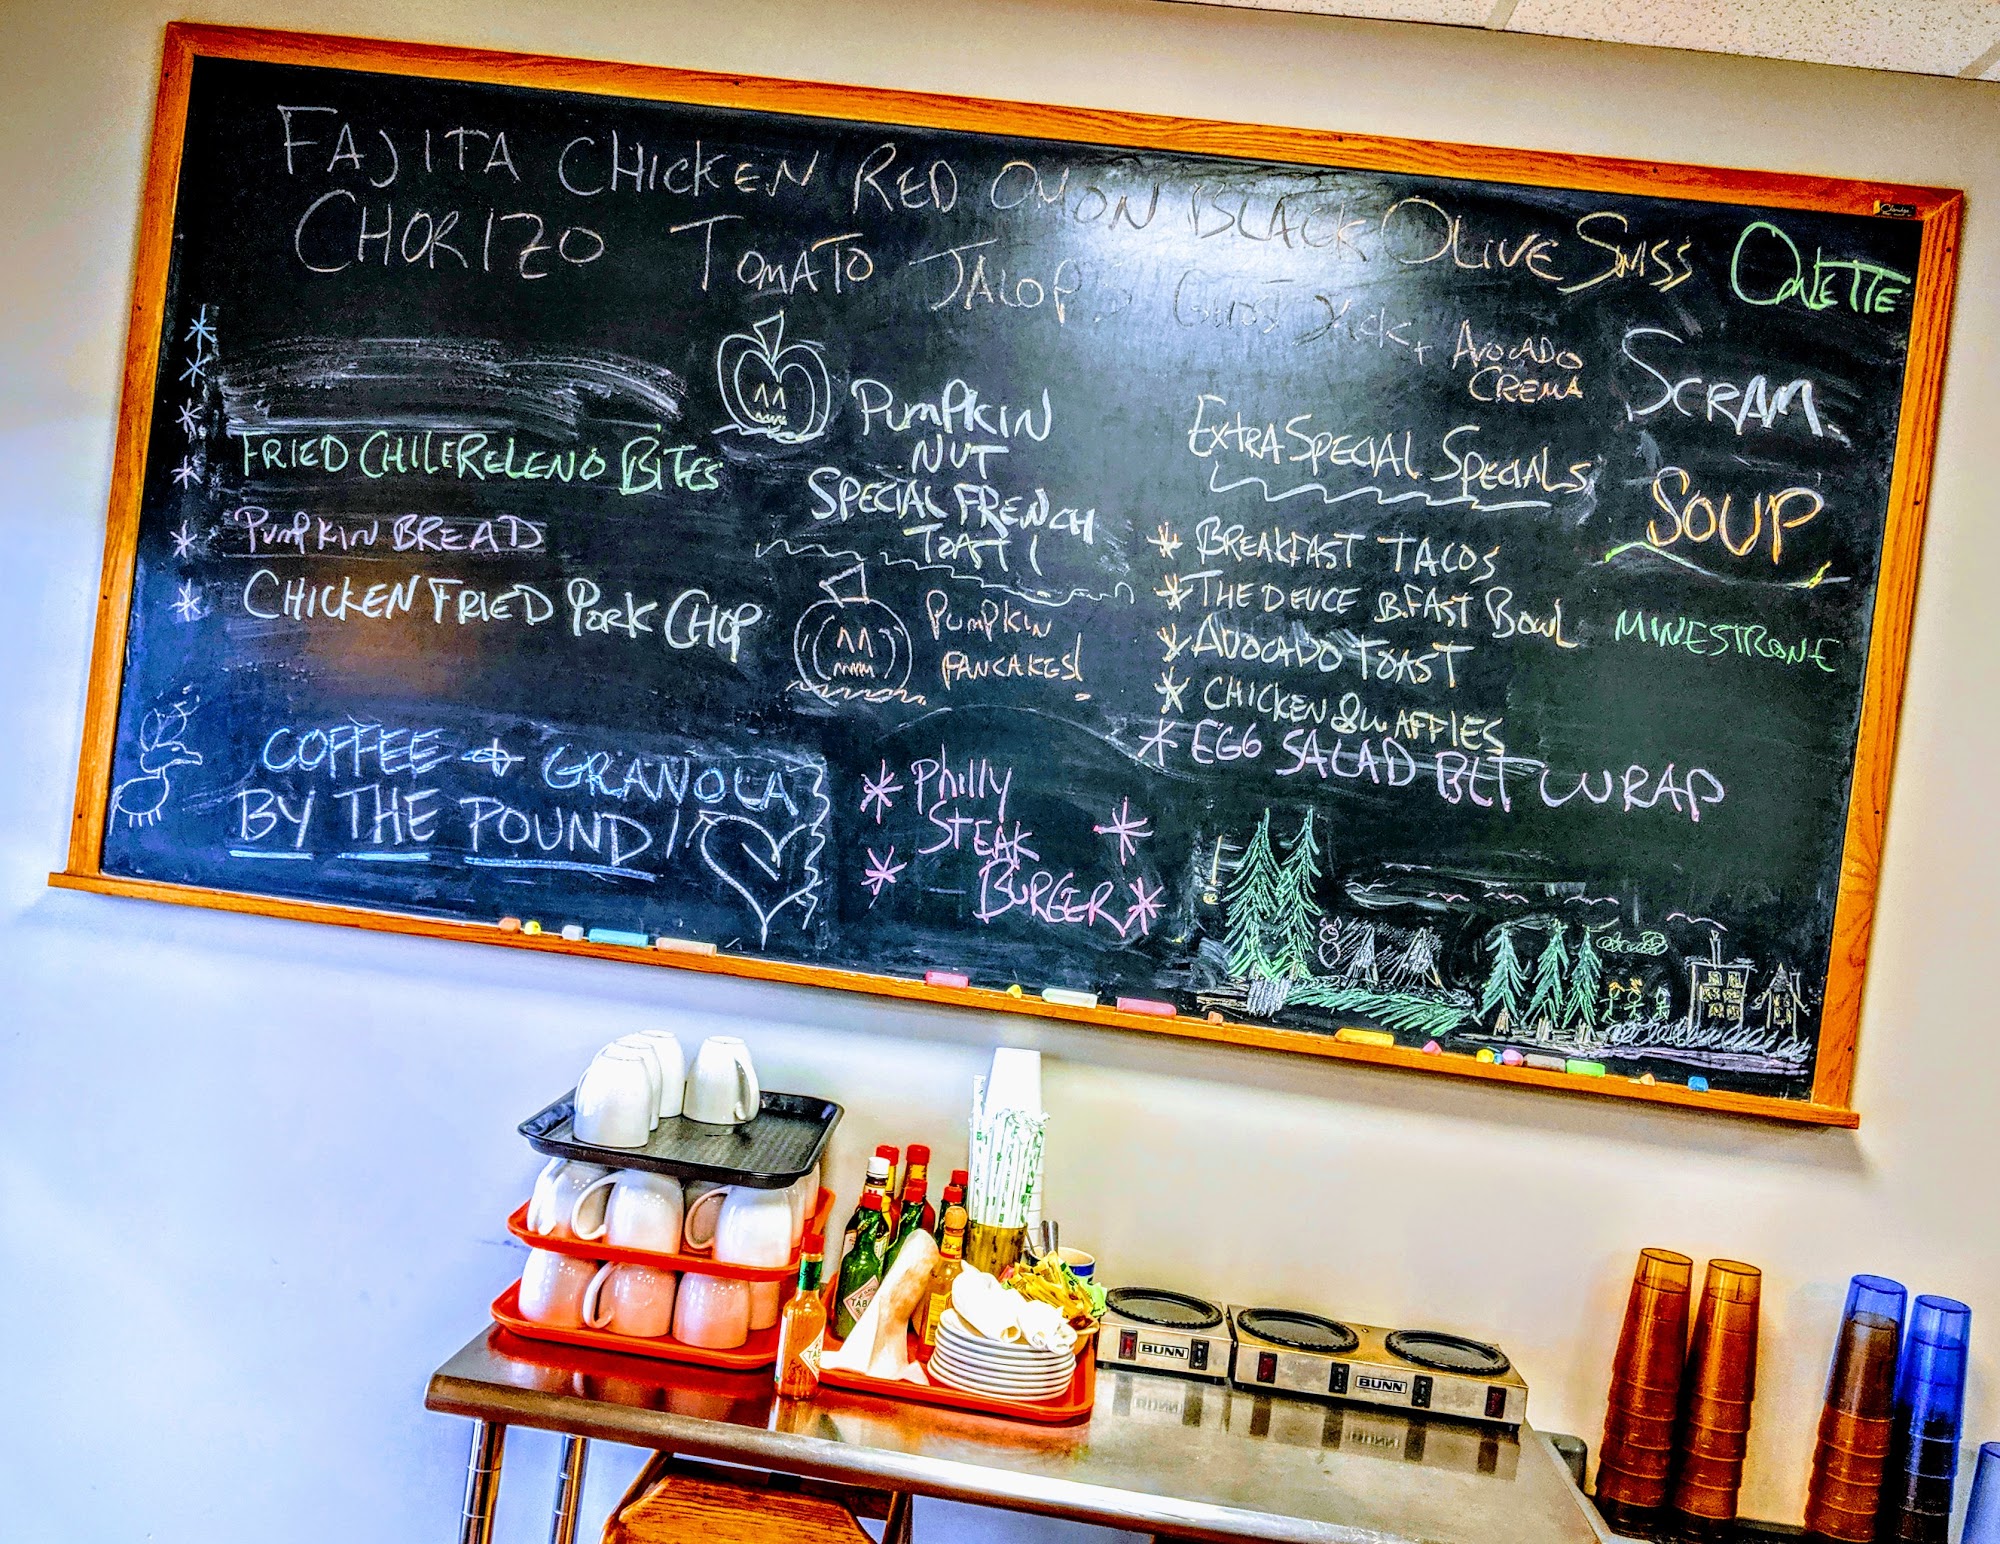 FAJITA CHICKEN RED ONION BLACK OLIVE SWISS OMLETTE
CHORIZO TOMATO JALOP GHOST JACK + AVOCADO CREMA SCRAM.
FRIED CHILE RELENO BITES
PUMPKIN BREAD
CHICKEN FRIED PORK CHOP
COFFEE + GRANOLA
BY THE POUND!
PUMPKIN
NUT
SPECIAL FRENCH
TOAST!
PUMPKIN
PANCAKES!
* Philly
STEAK *
* BURGER *
EXTRA SPECIAL SPECIALS
* BREAKFAST TACOS
* THE DEUCE B.FAST BOWL
* AVOCADO TOAST
* CHICKEN & WAFFLES
* EGG SALAD BLT WRAP
SOUP
MINESTRONE
BUNN
BUNN